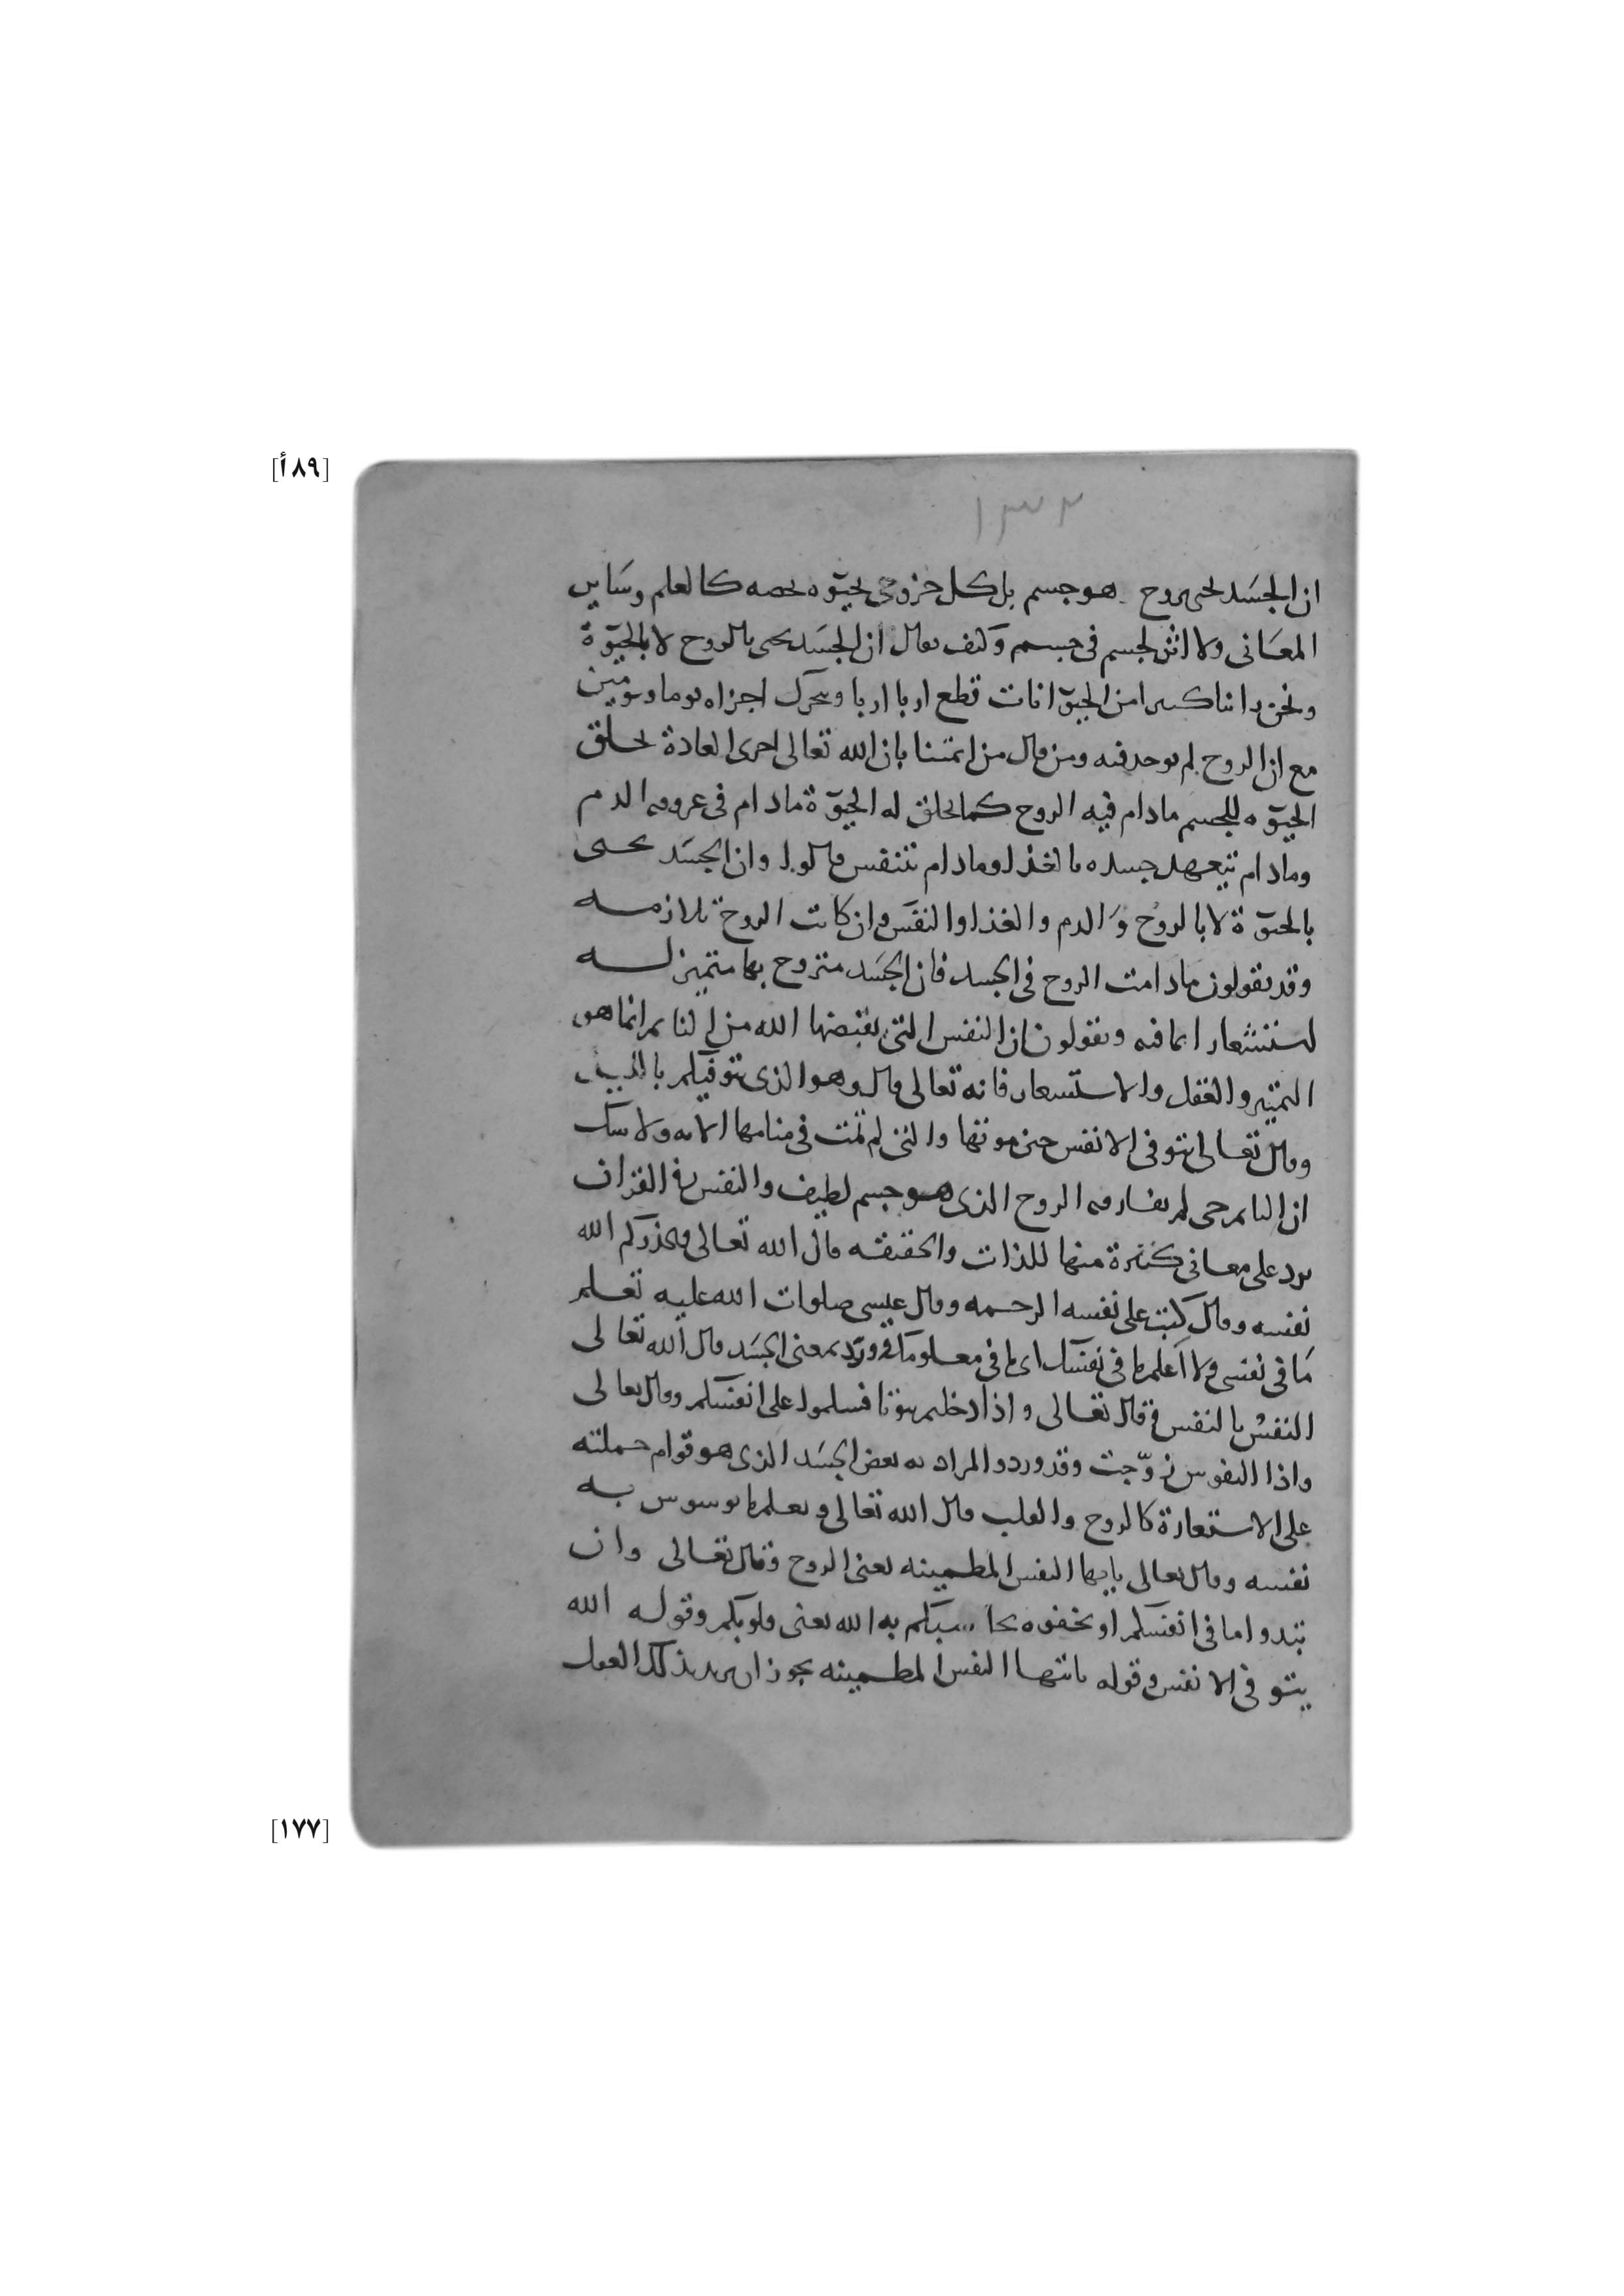 [٨٩أ]
١٣٢
ان الجسَد لحى بروح هو جسم بل كل جزو حى بحيٰوه تخصه كالعلم وسَاير
المعَانى ولا اثر لجسم فى جسم وكيف يقال ان الجسَد يحى بالروح لا بالحيٰوة
ونحن راينا كثيرا من الحيوانات قطع اربا اربا ويتحرك اجزاه يوما ويومين
مع ان الروح لم يوجد فيه ومن قال من ائمتنا بان الله تعالى اجرى العادة بخلق
الحيٰوه للجسم مادام فيه الروح كما يخلق له الحيٰوة مادام فى عروقه الدم
ومادام يتعهد جسده بالغذا ومادام يتنفس قالوا وان الجسَد يحيى
بالحيٰوة لا بالروح وَالدم والغذا والنفَس وان كانت الروح تلازمه
وقد يقولون مادامت الروح فى الجسد فان الجسَد متروح بها متميز له
استشعار بما فيه ويقولون ان النفس التى يقبضها الله من النايم انما هو
التميز والعقل والاستشعار فانه تعالى قال وهو الذى يتوفيكم بالليل
وقال تعالى يتوفى الانفس حين موتها والتى لم تمت فى منامها الايه ولا شك
ان النايم حى لم يفارقه الروح الذى هو جسم لطيف والنفس فى القران
يرد على معانى كثيرة منها للذات والحقيقه قال الله تعالى ويحذركم الله
نفسه وقال كتب على نفسه الرحمه وقال عيسى صلوات الله عليه تعلم
مَا فى نفسى ولا اَعلم ما فى نفسك اى ما فى معلوماتى وترد بمعنى الجسَد قال الله تعالى
النفسُ بالنفس وقال تعالى واذا دخلتم بيوتا فسلموا على انفسكم وقال تعالى
واذا النفوس زوّجت وقد ورد والمراد به بعض الجسَد الذى هو قوام جملته
على الاستعارة كالروح والقلب قال الله تعالى ونعلم ما توسوس به
نفسه وقال تعالى يايها النفس المطمينه يعنى الروح وقال تعالى وان
تبدوا ما فى انفسكم او تخفوه يحاسبكم به الله يعنى قلوبكم وقوله الله
يتوفى الانفس وقوله يايتها النفس المطمينه يجوز ان يريد بذلك العقل
[١٧٧]